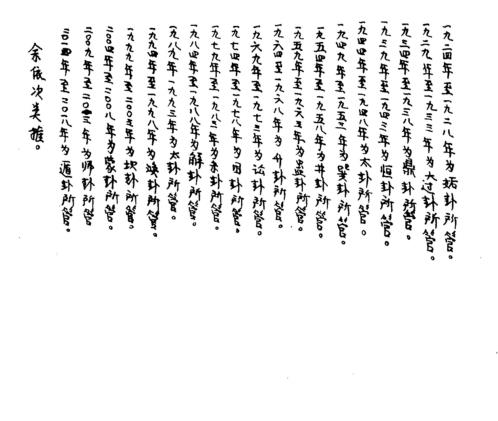 一九二四年至一九二八年为姤卦所管。
一九二九年至一九三三年为大过卦所管。
一九三四年至一九三八年为鼎卦所管。
一九三九年至一九四三年为恒卦所管。
一九四四年至一九四八年为太卦所管。
一九四九年至一九五三年为巽卦所管。
一九五四年至一九五八年为井卦所管。
一九五九年至一九六三年为蛊卦所管。
一九六四至一九六八年为升卦所管。
一九六九年至一九七三年为讼卦所管。
一九七四年至一九七八年为困卦所管。
一九七九年至一九八三年为未卦所管。
一九八四年至一九八八年为解卦所管。
一九八九年一九九三年为太卦所管。
一九九四年至一九九八年为涣卦所管。
一九九九年至二〇〇三年为坎卦所管。
二〇〇四年至二〇〇八年为蒙卦所管。
二〇〇九年至二〇一三年为师卦所管
二〇一四年至二〇一八年为遁卦所管。
余依次类推。